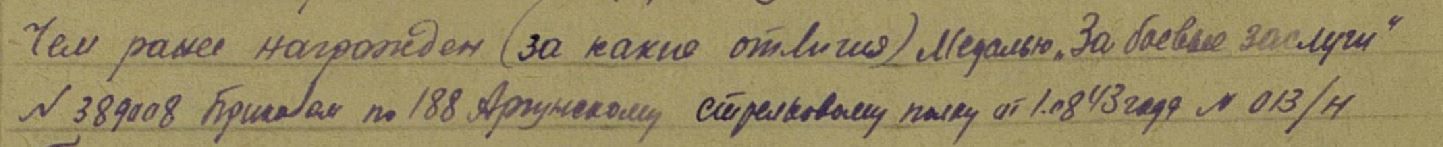 Чем ранее награжден (за какие отличия) Медалью „За боевые заслуги"
N 389008 Приказом по 188 Аргунскому стрелковому полку от 1.08 43 года N 013/н